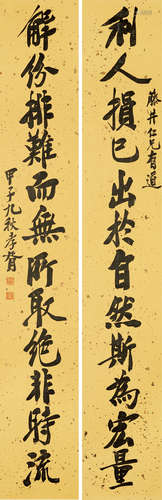 藤井仁兄有道
利人損已出於自然斯為宏量
解份排難而無所取絶非時流
甲子九秋孝胥